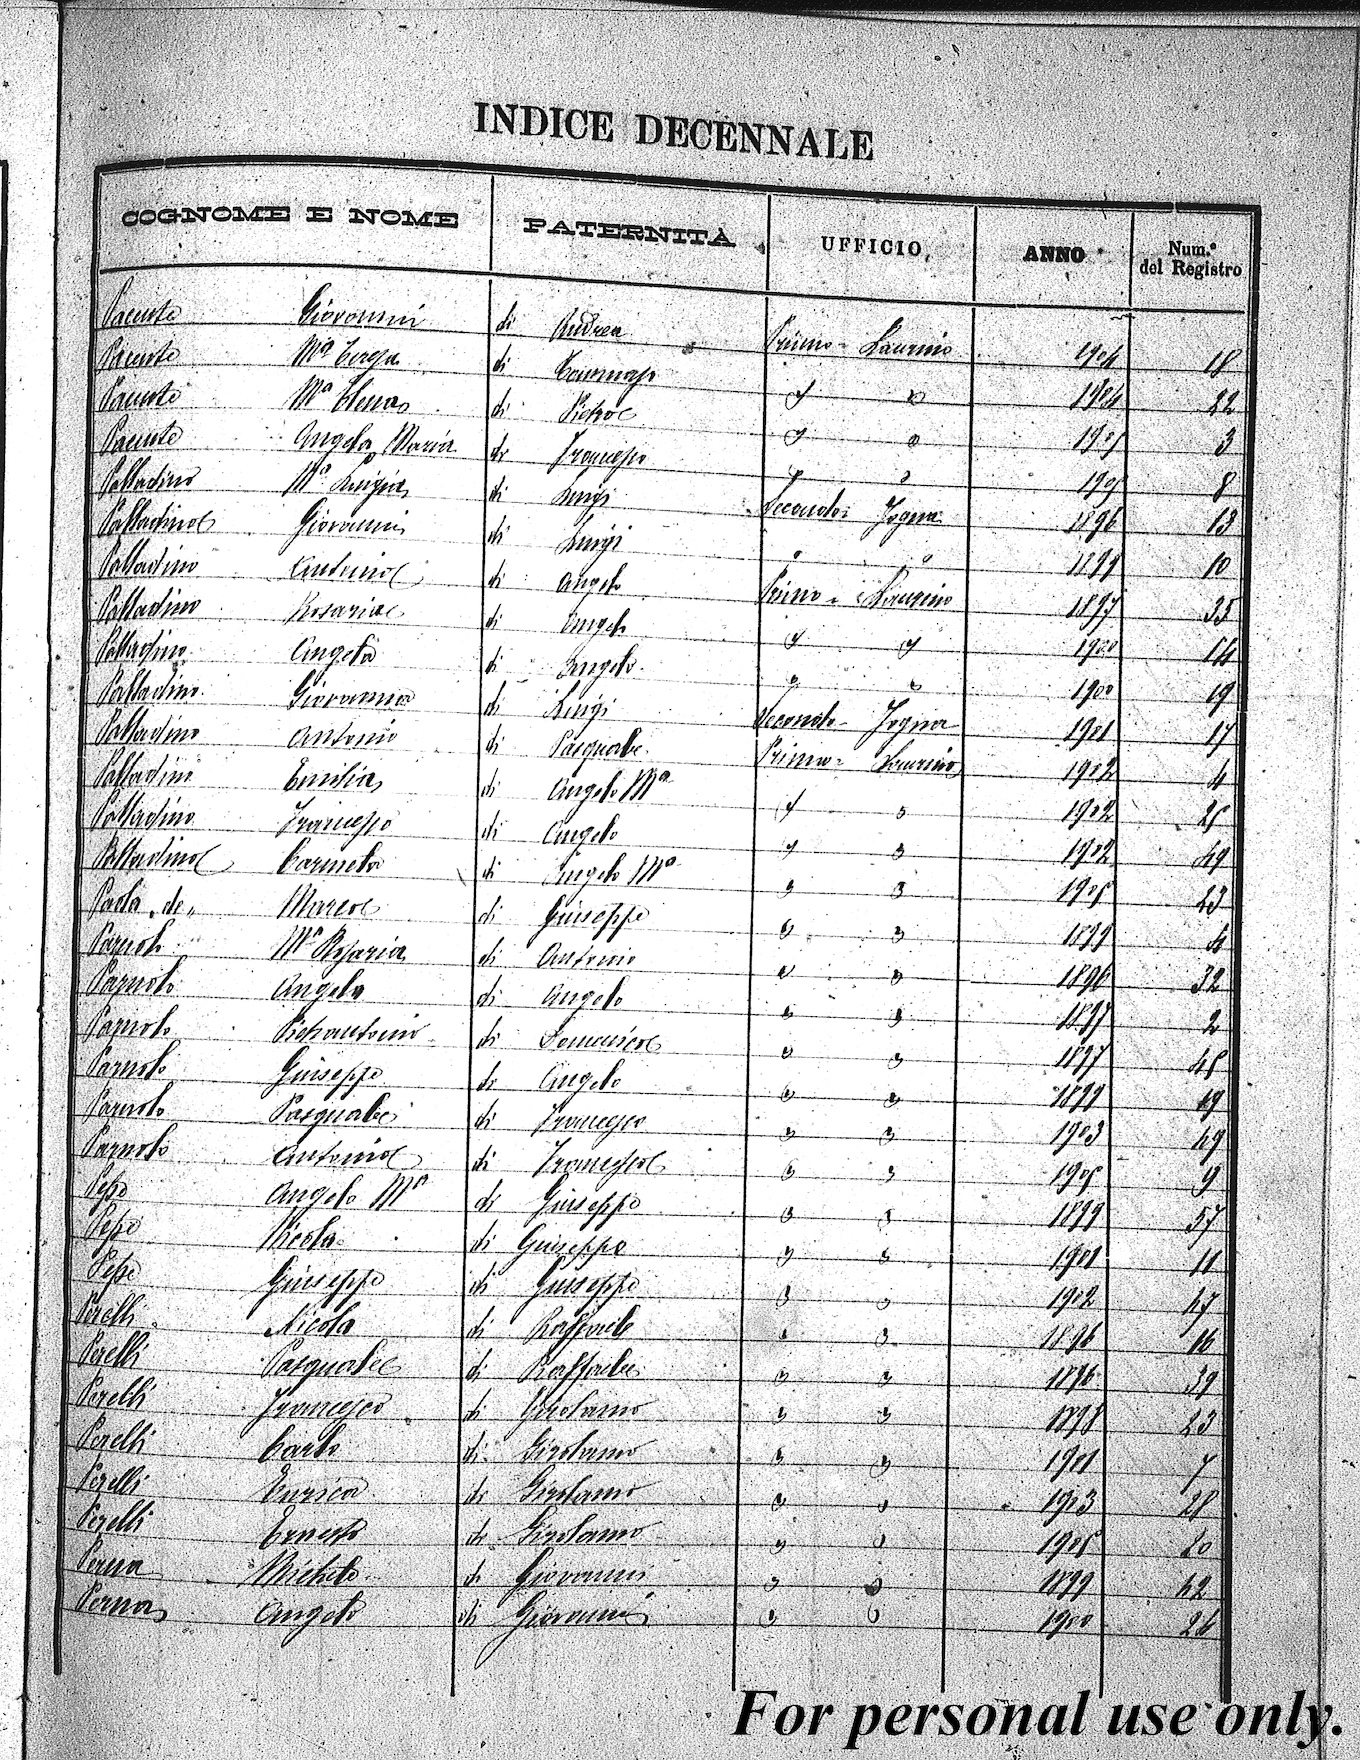 INDICE DECENNALE
COGNOME E NOME PATERNITÀ UFFICIO, ANNO Num.º del Registro
Pacente Giovanni di Andrea Primo - Laurino 1904 18
Pacente Mª Teresa di Tommaso " " 1904 22
Pacente Mª Elena di Pietro " " 1905 3
Pacente Angela Maria di Francesco " " 1905 8
Palladino Mª Luigia di Luigi Secondo - Fogna 1896 13
Palladino Giovanni di Luigi " " 1899 10
Palladino Antonio di Angelo Primo - Laurino 1897 35
Palladino Rosaria di Angelo " " 1900 14
Palladino Angela di Angelo " " 1900 19
Palladino Giovanna di Luigi Secondo - Fogna 1901 17
Palladino Antonio di Pasquale Primo - Laurino 1902 4
Palladino Emilia di Angelo Mª " " 1902 25
Palladino Francesco di Angelo " " 1902 49
Palladino Carmela di Angelo Mª " " 1905 23
Paola "de" Marco di Giuseppe " " 1899 4
Parnolo Mª Rosaria di Antonio " " 1896 32
Parnolo Angela di Angelo " " 1897 2
Parnolo Pietrantonio di Domenico " " 1897 45
Parnolo Giuseppe di Angelo " " 1899 49
Parnolo Pasquale di Francesco " " 1903 49
Parnolo Antonio di Francesco " " 1905 9
Pepe Angelo Mª di Giuseppe " " 1899 57
Pepe Nicola di Giuseppe " " 1901 11
Pepe Giuseppe di Giuseppe " " 1902 47
Perelli Nicola di Raffaele " " 1896 16
Perelli Pasquale di Raffaele " " 1896 39
Perelli Francesco di Girolamo " " 1898 23
Perelli Carlo di Girolamo " " 1901 7
Perelli Enrica di Girolamo " " 1903 28
Perelli Ernesto di Girolamo " " 1905 20
Perna Michele di Giovanni " " 1899 42
Perna Angelo di Giovanni " " 1900 26
For personal use only.